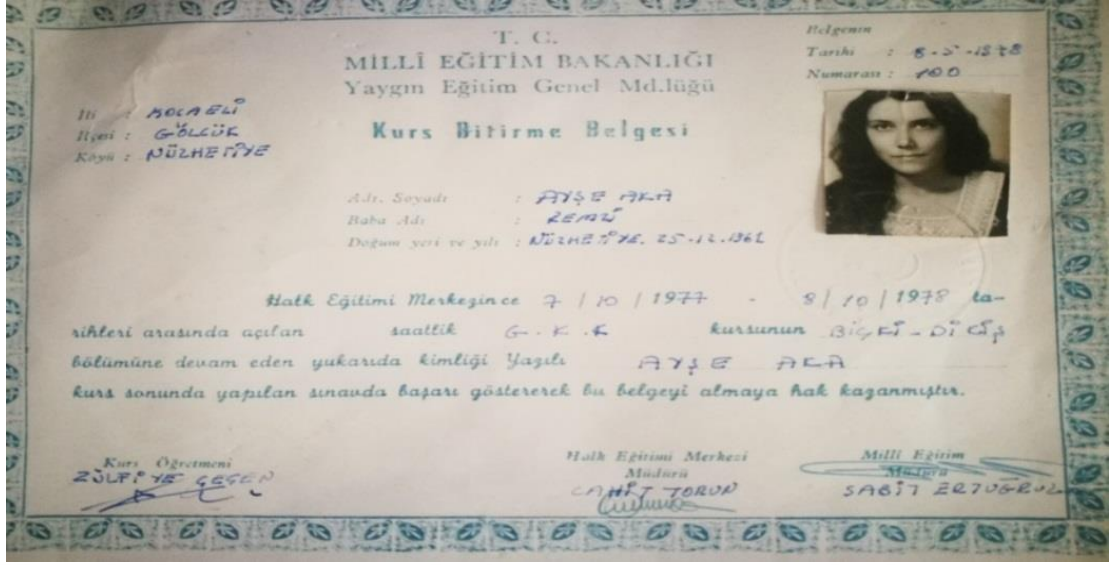 T. C.
MİLLÎ EĞİTİM BAKANLIĞI
Yaygın Eğitim Genel Md.lüğü
Kurs Bitirme Belgesi
Belgenin
Tarihi : 8-5-1978
Numarası : 100
İli : KOCAELİ
İlçesi : GÖLCÜK
Köyü : NÜZHETİYE
Adı, Soyadı : AYŞE AKA
Baba Adı : REMZİ
Doğum yeri ve yılı : NÜZHETİYE. 25-12-1961
Halk Eğitimi Merkezince 7 / 10 / 1977 - 8 / 10 / 1978 ta-
rihleri arasında açılan saatlik G.K.K kursunun BİÇKİ-DİKİŞ
bölümüne devam eden yukarıda kimliği Yazılı AYŞE AKA
kurs sonunda yapılan sınavda başarı göstererek bu belgeyi almaya hak kazanmıştır.
Kurs Öğretmeni
ZÜLFİYE GEÇEN
Halk Eğitimi Merkezi
Müdürü
CAHİT TORUN
Milli Eğitim
Müdürü
SABİT ERTUĞRUL